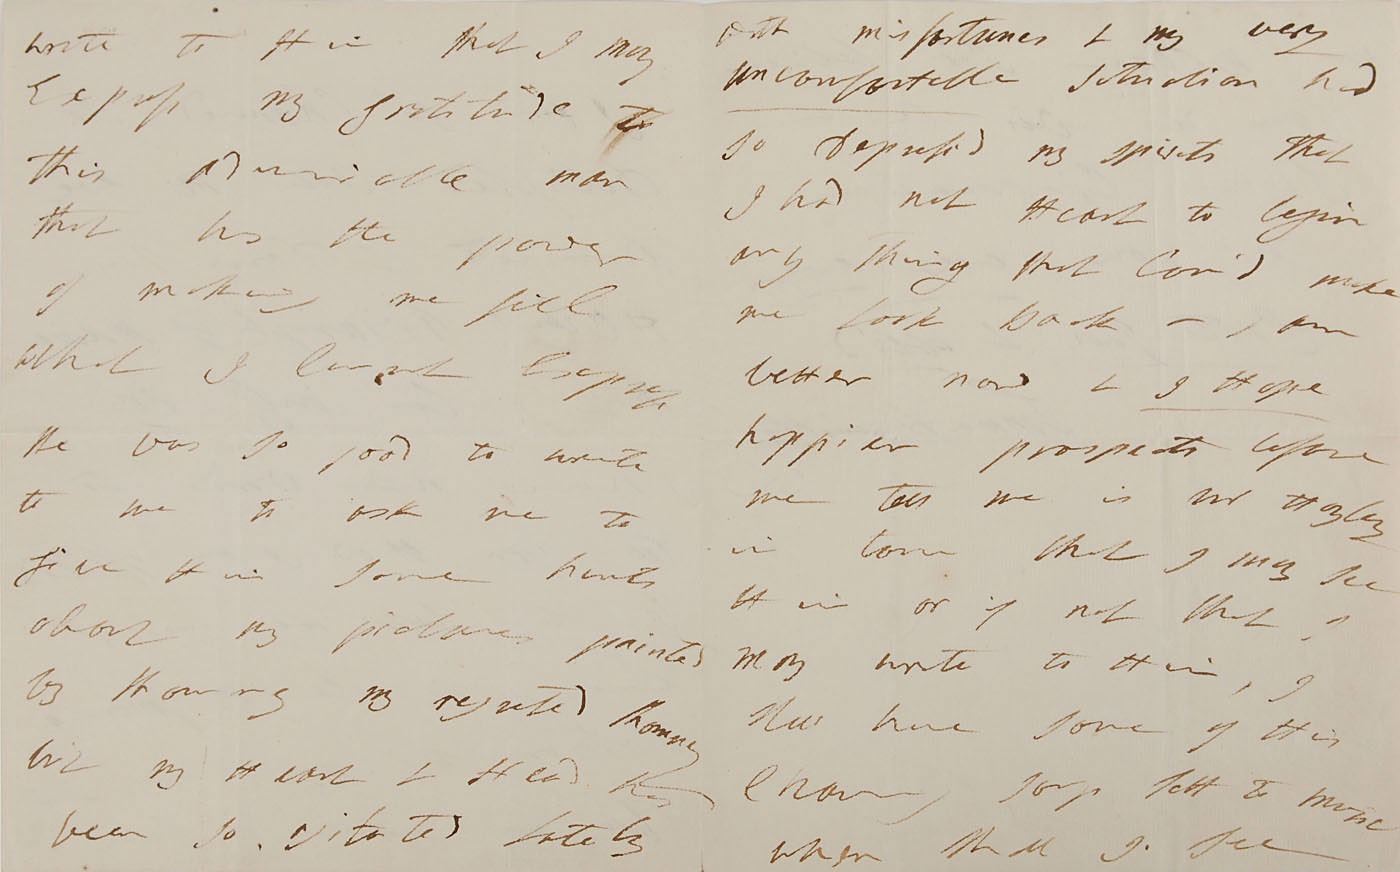 write to Him that I may
Express my gratitude to
this admirable man
that has the power
of making me feil
what I cannot Express
He was so good to write
to me to ask me to
give Him some hints
about my pictures painted
by my regreted Romney
but my Heart & Head has
been so agitated lately
with misfortunes & my very
uncomfortable situation had
so depressd my spirets that
I had not Heart to begin
any thing that Cou'd make
me look back – I am
better now & I Hope
happier prospects before
me tell me is mr Hayley
in town that I may see
Him or if not that I
may write to Him, I
shall have some of His
Charming songs sett to music
when shall I see